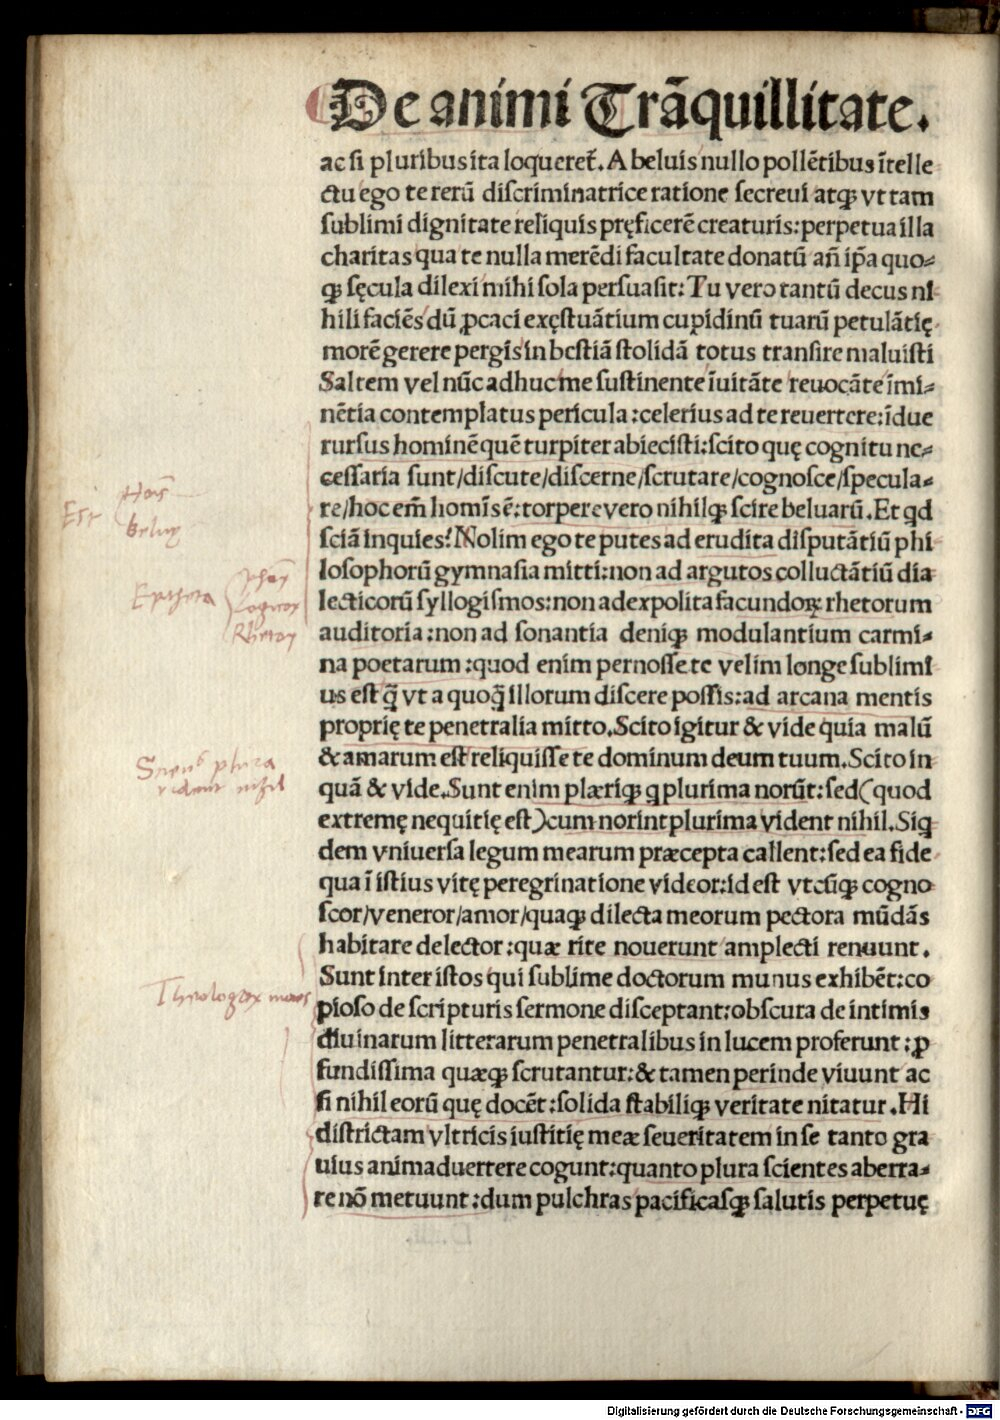 De animi Trãquillitate.
ac si pluribus ita loqueret̃. A beluis nullo pollẽtibus ĩtelle
ctu ego te rerũ discriminatrice ratione secreui atqꝫ vt tam
sublimi dignitate reliquis pręficerẽ creaturis: perpetua illa
charitas qua te nulla merẽdi facultate donatũ añ ip̃a quo⸗
qꝫ sęcula dilexi mihi sola persuasit: Tu vero tantũ decus ni
hili faciẽs dũ ꝓcaci exęstuãtium cupidinũ tuarũ petulãtię
morẽ gerere pergis in bestiã stolidã totus transire maluisti
Saltem vel nũc adhuc me sustinente ĩuitãte reuocãte ĩmi⸗
nẽtia contemplatus pericula: celerius ad te reuertere: ĩdue
rursus hominẽ quẽ turpiter abiecisti: scito quę cognitu ne⸗
cessaria sunt/discute/discerne/scrutare/cognosce/specula⸗
re/hoc em̃ homĩs ẽ: torpere vero nihilqꝫ scire beluarũ. Et qd
sciã inquies? Nolim ego te putes ad erudita disputãtiũ phi
losophorũ gymnasia mitti: non ad argutos colluctãtiũ dia
lecticorũ syllogismos: non ad expolita facundoꝝ rhetorum
auditoria: non ad sonantia deniqꝫ modulantium carmi⸗
na poetarum: quod enim pernosse te velim longe sublimi
us est q̃ vt a quoq̃ illorum discere possis: ad arcana mentis
proprię te penetralia mitto. Scito igitur & vide quia malũ
& amarum est reliquisse te dominum deum tuum. Scito in
quã & vide. Sunt enim plæriqꝫ q plurima norũt: sed (quod
extremę nequitię est) cum norint plurima vident nihil. Siq
dem vniuersa legum mearum præcepta callent: sed ea fide
qua ĩ istius vitę peregrinatione videor: id est vtcũqꝫ cogno
scor/veneror/amor/quaqꝫ dilecta meorum pectora mũdãs
habitare delector: quæ rite nouerunt amplecti renuunt.
Sunt inter istos qui sublime doctorum munus exhibẽt: co
pioso de scripturis sermone disceptant: obscura de intimis
diuinarum litterarum penetralibus in lucem proferunt: ꝓ
fundissima quæqꝫ scrutantur: & tamen perinde viuunt ac
si nihil eorũ quę docẽt: solida stabiliqꝫ veritate nitatur. Hi
districtam vltricis iustitię meæ seueritatem in se tanto gra
uius animaduertere cogunt: quanto plura scientes aberra⸗
re nõ metuunt: dum pulchras pacificasqꝫ salutis perpetuę
Est
Epitheta
Theologoꝝ mores
Digitalisierung gefördert durch die Deutsche Forschungsgemeinschaft - DFG